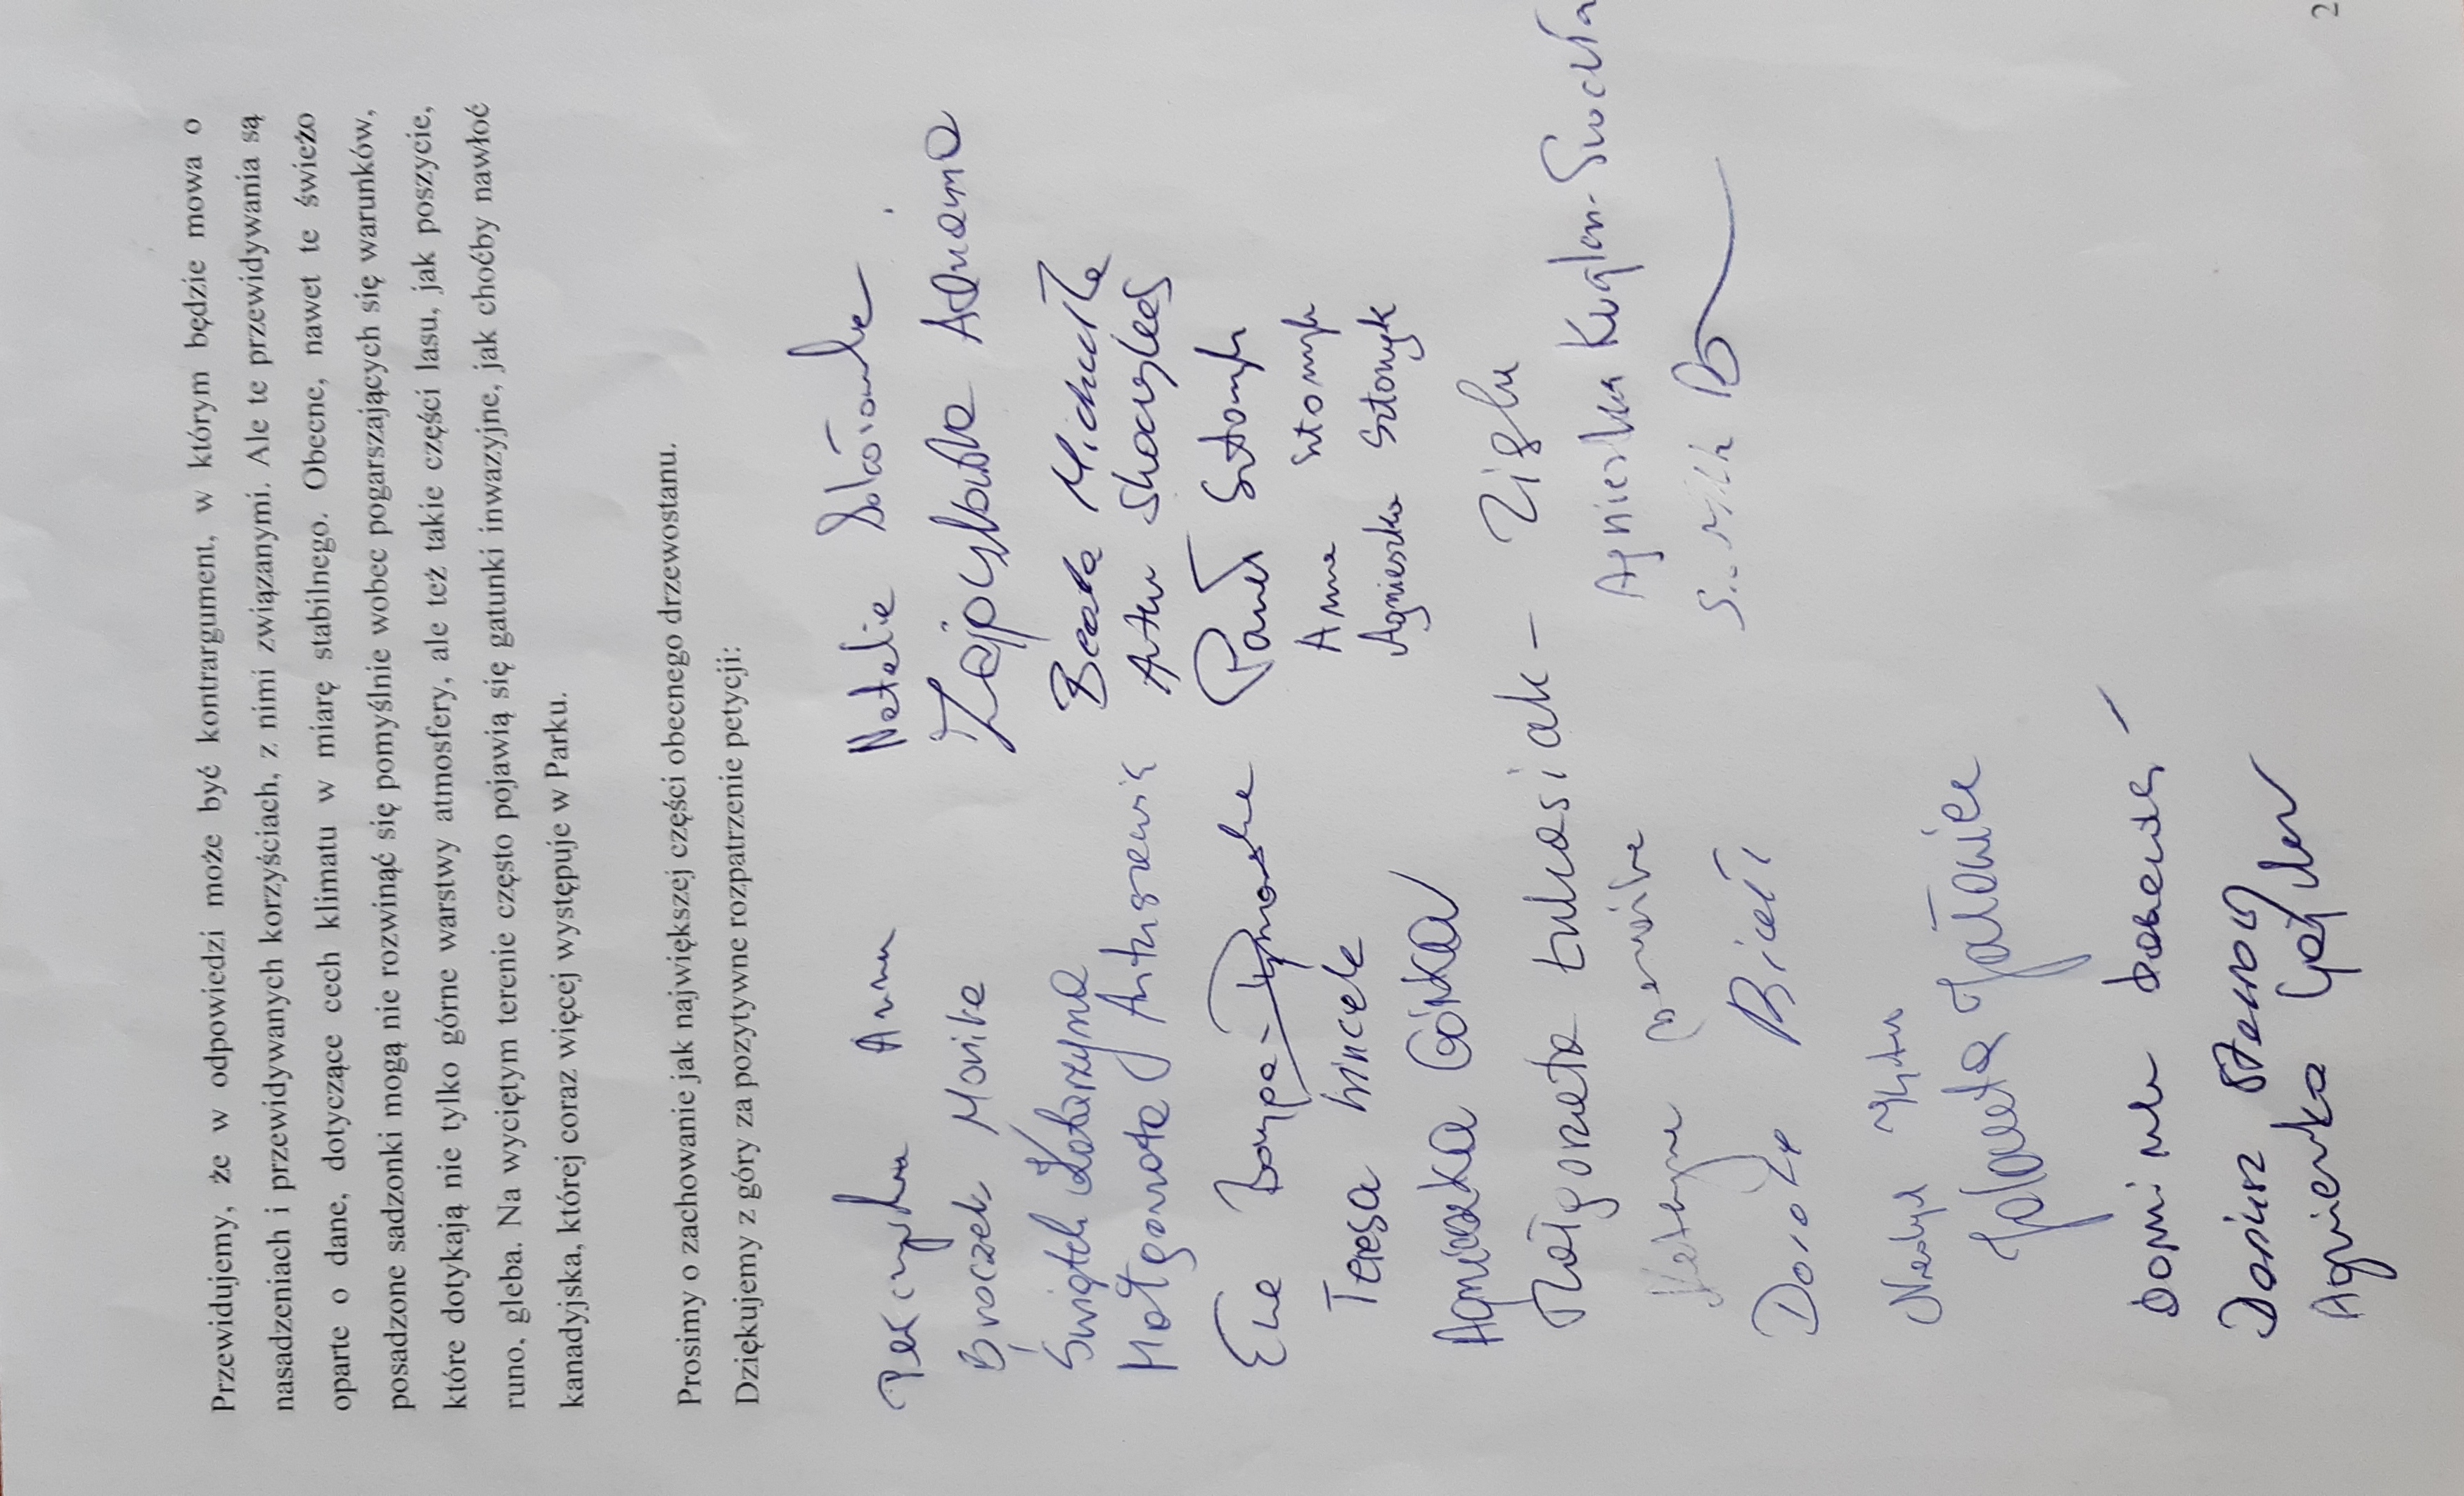 Przewidujemy, że w odpowiedzi może być kontrargument, w którym będzie mowa o
nasadzeniach i przewidywanych korzyściach, z nimi związanymi. Ale te przewidywania są
oparte o dane, dotyczące cech klimatu w miarę stabilnego. Obecne, nawet te świeżo
posadzone sadzonki mogą nie rozwinąć się pomyślnie wobec pogarszających się warunków,
które dotykają nie tylko górne warstwy atmosfery, ale też takie części lasu, jak poszycie,
runo, gleba. Na wyciętym terenie często pojawią się gatunki inwazyjne, jak choćby nawłoć
kanadyjska, której coraz więcej występuje w Parku.
Prosimy o zachowanie jak największej części obecnego drzewostanu.
Dziękujemy z góry za pozytywne rozpatrzenie petycji:
Anna
Broczek Monika
Świątek Katarzyna
Małgorzata Antuszewic
Ewa
Teresa Wincek
Agnieszka Górka
Małgorzata Łukasiak -
Katarzyna
Dorota
Jolanta
Dominik
Dariusz
Agnieszka
Natalia
Zajączkowska Adrianna
Beata Michalska
Artur
Paweł Sztonyk
Anna Sztonyk
Agnieszka Sztonyk
Agnieszka
2